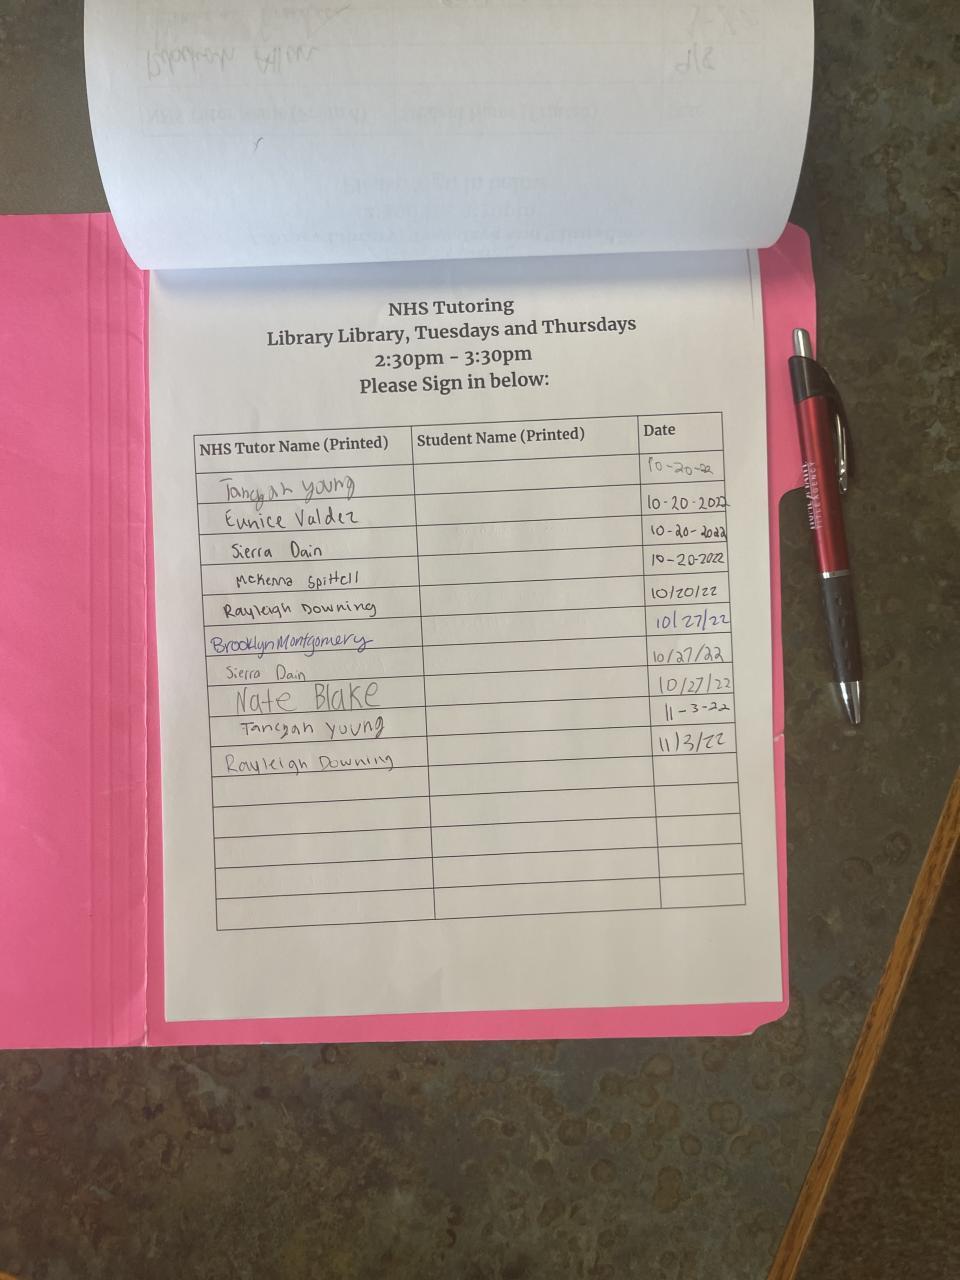 NHS Tutoring
Library Library, Tuesdays and Thursdays
2:30pm - 3:30pm
Please Sign in below:
NHS Tutor Name (Printed) Student Name (Printed) Date
young 10-20-22
Eunice Valdez 10-20-2022
Sierra Dain 10-20-2022
McKenna Spittell 10-20-2022
Rayleigh Downing 10/20/22
Brooklyn Montgomery 10/27/22
Sierra Dain 10/27/22
Nate Blake 10/27/22
young 11-3-22
Rayleigh Downing 11/3/22
TITLE AGENCY